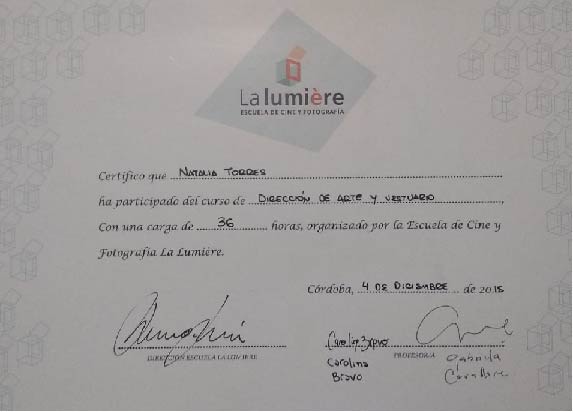 La lumière
ESCUELA DE CINE Y FOTOGRAFÍA
Certifico que NATALIA TORRES
ha participado del curso de DIRECCIÓN DE ARTE Y VESTUARIO,
Con una carga de 36 horas, organizado por la Escuela de Cine y
Fotografía La Lumière.
Córdoba, 4 DE DICIEMBRE de 2015
DIRECCIÓN ESCUELA LA LUMIERE
PROFESOR/A
Carolina
Bravo
Gabriela